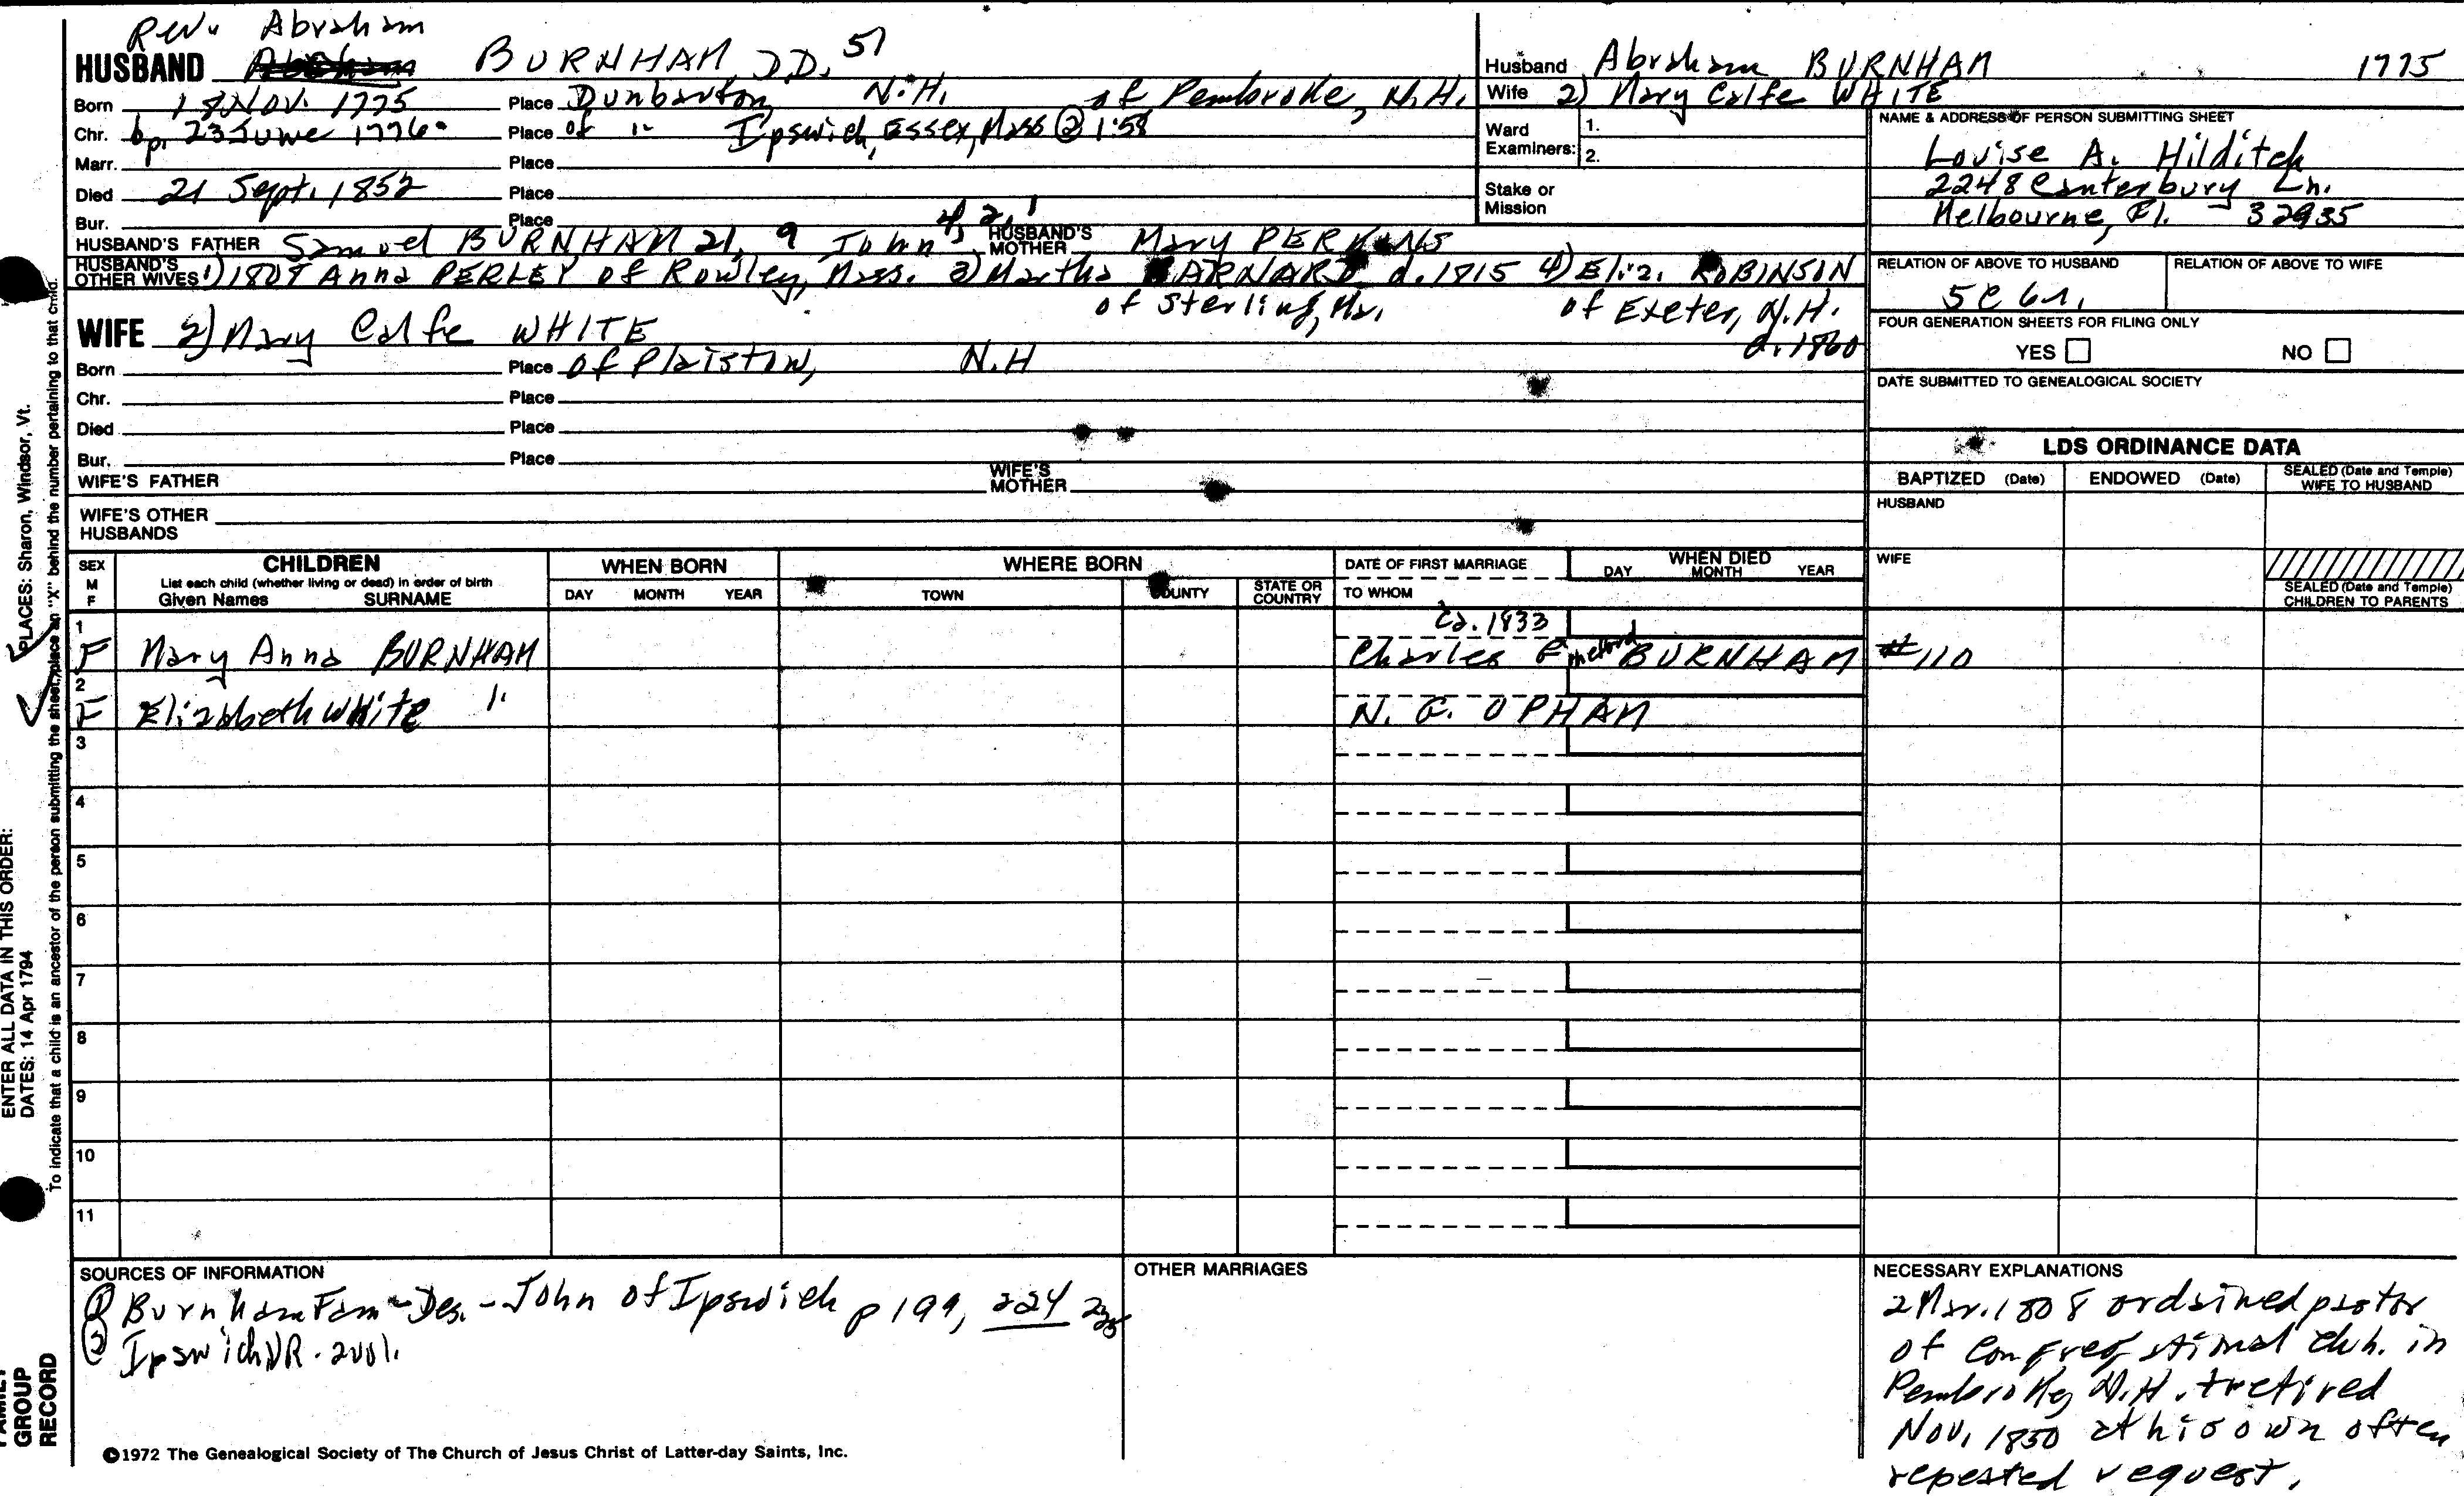 Rev. Abraham
HUSBAND BURNHAM, D.D. 57
Born 18 Nov. 1775 Place Dunbarton, N.H. of Pembroke, N.H.
Chr. bp. 23 June 1776 Place of " Ipswich, Essex, Mass @ 1:58
Marr. Place
Died 21 Sept. 1852 Place
Bur. Place
HUSBAND'S FATHER Samuel BURNHAM 21, 9 John 4, 2, 1 HUSBAND'S MOTHER Mary PERKINS
HUSBAND'S OTHER WIVES 1) 1808 Anna PERLEY of Rowley, Mass. 3) Martha BARNARD d. 1815 4) Eliz. ROBINSON
of Sterling, Ms. of Exeter, N.H.
d. 1860
WIFE 2) Mary Calfe WHITE
Born Place of Plaistow, N.H
Chr. Place
Died Place
Bur. Place
WIFE'S FATHER WIFE'S MOTHER
WIFE'S OTHER HUSBANDS
Husband Abraham BURNHAM 1775
Wife 2) Mary Calfe WHITE
Ward Examiners: 1.
2.
Stake or Mission
NAME & ADDRESS OF PERSON SUBMITTING SHEET
Louise A. Hilditch
2248 Canterbury Ln.
Melbourne, Fl. 32935
RELATION OF ABOVE TO HUSBAND RELATION OF ABOVE TO WIFE
5C 6r.
FOUR GENERATION SHEETS FOR FILING ONLY
YES NO
DATE SUBMITTED TO GENEALOGICAL SOCIETY
LDS ORDINANCE DATA
BAPTIZED (Date) ENDOWED (Date) SEALED (Date and Temple) WIFE TO HUSBAND
HUSBAND
WIFE
SEALED (Date and Temple) CHILDREN TO PARENTS
SEX M F
CHILDREN
List each child (whether living or dead) in order of birth
Given Names SURNAME
WHEN BORN
DAY MONTH YEAR
WHERE BORN
TOWN COUNTY STATE OR COUNTRY
DATE OF FIRST MARRIAGE
TO WHOM
WHEN DIED
DAY MONTH YEAR
1 Ca. 1833
F Mary Anna BURNHAM Charles BURNHAM #110
2
F Elizabeth White " N. G. UPHAM
3
4
5
6
7
8
9
10
11
SOURCES OF INFORMATION
① Burnham Fam - Des. - John of Ipswich p 199, 224
② Ipswich VR. 2vol.
OTHER MARRIAGES
NECESSARY EXPLANATIONS
2 Mar. 1808 ordained pastor
of Congregational chh. in
Pembroke, N.H. + retired
Nov. 1850 at his own often
repeated request.
©1972 The Genealogical Society of The Church of Jesus Christ of Latter-day Saints, Inc.
PLACES: Sharon, Windsor, Vt.
To indicate that a child is an ancestor of the person submitting the sheet, place an "X" behind the number pertaining to that child.
ENTER ALL DATA IN THIS ORDER:
DATES: 14 Apr 1794
FAMILY
GROUP
RECORD